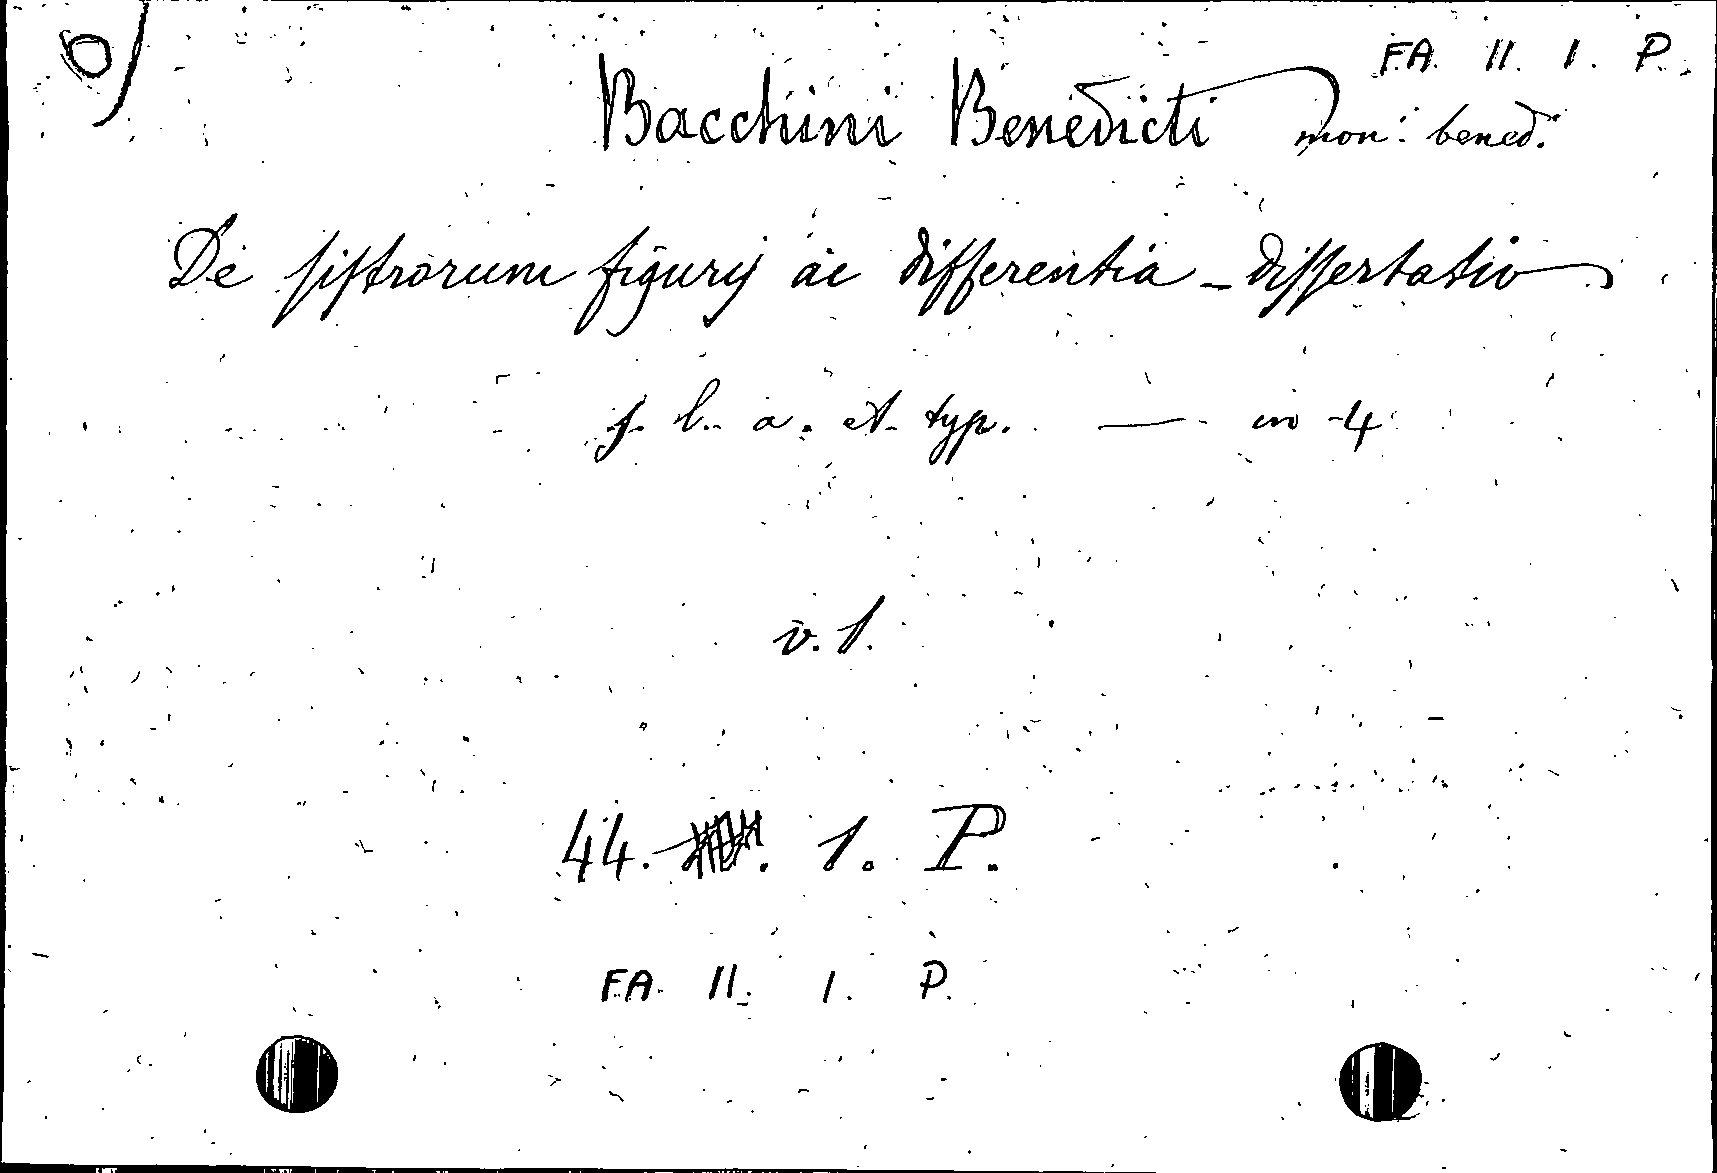 FA. II. I. P.
Bacchini Benedicti mon: bened:
De sistrorum figuris ac differentia - dissertatio
s. l. a. et typ. — in 4
v. 1.
44. 1. P.
FA. II. I. P.